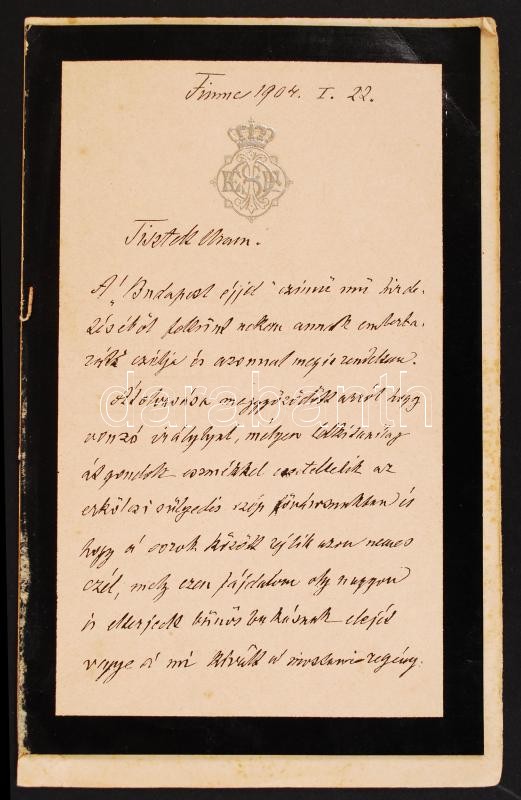 Fiume 1904. I. 22.
Tisztelt Uram.
A' „Budapest éjjel" czímü mű hirde-
téséből feltünt nekem annak emberba-
ráti czélja és azonnal megis rendeltem.
Átolvasása meggyőződött arról hogy
vonzó irálylyal, mélyen
át gondolt eszmékkel az
erkölcsi sülyedés szép fővárosunkban és
hogy a' sorok között rejlik azon nemes
czél, mely ezen fájdalom oly nagyon
is elterjedt bűnös bukásnak elejét
vegye a' mi a' mostani regény-
darabanth